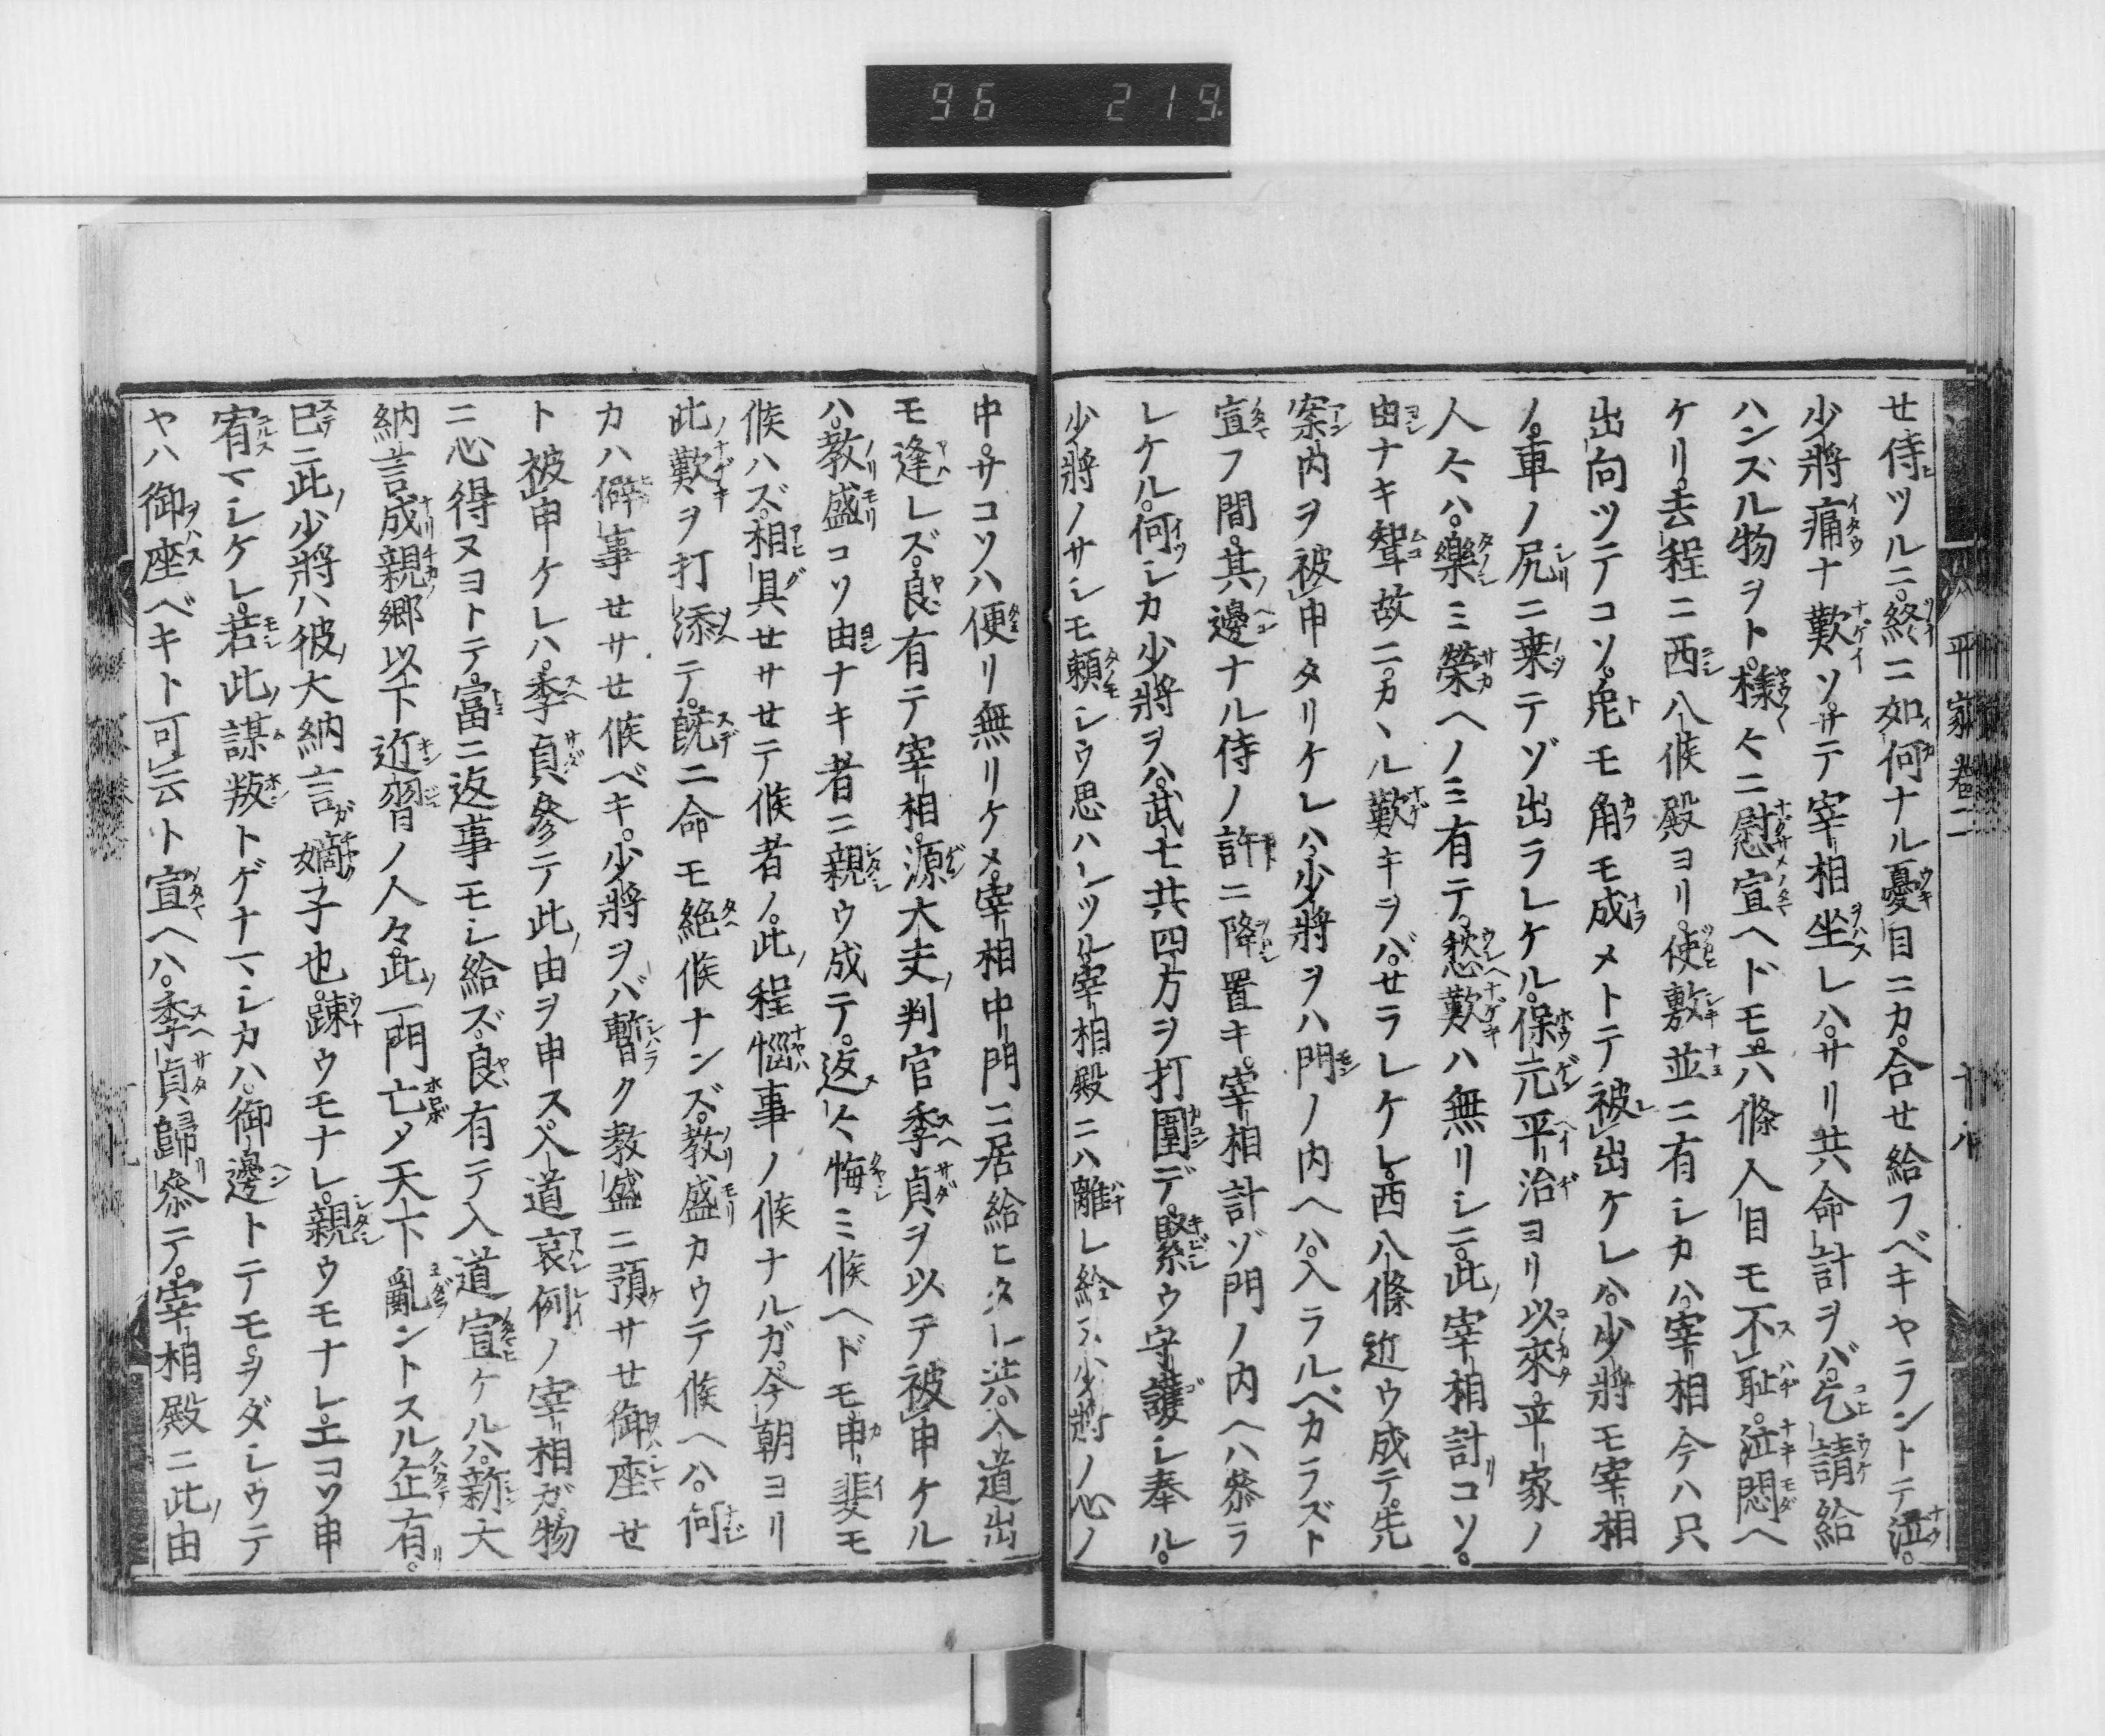 96 219.
平家巻二 十八
せ侍ツルニ。終ニ如何ナル憂目ニカ。合せ給フベキヤラントテ泣。
少將痛ナ歎ソ。サテ宰相坐レハ。サリ共命計ヲバ。乞請給
ハンズル物ヲト。樣々ニ慰宣ヘドモ。六條人目モ不恥。泣悶ヘ
ケリ。去程ニ西八條殿ヨリ。使敷並ニ有シカハ。宰相今ハ只
出向ツテコソ。兎モ角モ成メトテ被出ケレハ。少將モ宰相
ノ。車ノ尻ニ乗テゾ出ラレケル。保元平治ヨリ以來。平家ノ
人々ハ。樂ミ榮ヘノミ有テ。愁歎ハ無リシニ。此宰相計コソ。
由ナキ聟故ニ。カヽル歎キヲバ。せラレケレ。西八條近ウ成テ。先
案内ヲ被申タリケレハ。少將ヲハ門ノ内ヘハ。入ラルベカラズト
宣フ間。其邊ナル侍ノ許ニ降置キ。宰相計ゾ門ノ内ヘハ参ラ
レケル。何シカ少將ヲハ。武士共四方ヲ打圍デ。緊ウ守護シ奉ル。
少將ノサシモ頼シウ思ハレツル。宰相殿ニハ離レ給ヌ。少將ノ心ノ
中。サコソハ便リ無リケメ。宰相中門ニ居給ヒタレ共。入道出
モ逢レズ。良有テ宰相。源大夫判官季貞ヲ以テ被申ケル
ハ。教盛コソ由ナキ者ニ親ウ成テ。返々悔ミ候ヘドモ申斐モ
候ハズ。相具せサせテ候者ノ。此程惱事ノ候ナルガ。今朝ヨリ
此歎ヲ打添テ。既ニ命モ絶候ナンズ。教盛カウテ候ヘハ。何
カハ僻事せサせ候ベキ。少將ヲバ暫ク教盛ニ預サせ御座せ
ト被申ケレハ。季貞參テ此由ヲ申ス。入道哀例ノ宰相ガ。物
ニ心得ヌヨトテ。冨ニ返事モシ給ズ。良有テ入道宣ケルハ。新大
納言成親郷以下近習ノ人々。此一門亡メ天下亂ントスル企有。
巳ニ此少將ハ彼大納言ガ嫡子也。踈ウモナレ。親ウモナレ。エコソ申
宥マシケレ。若此謀叛トゲナマシカハ。御邊トテモ。ヲダシウテ
ヤハ御座ベキト可云ト宣ヘハ。季貞歸參テ。宰相殿ニ此由